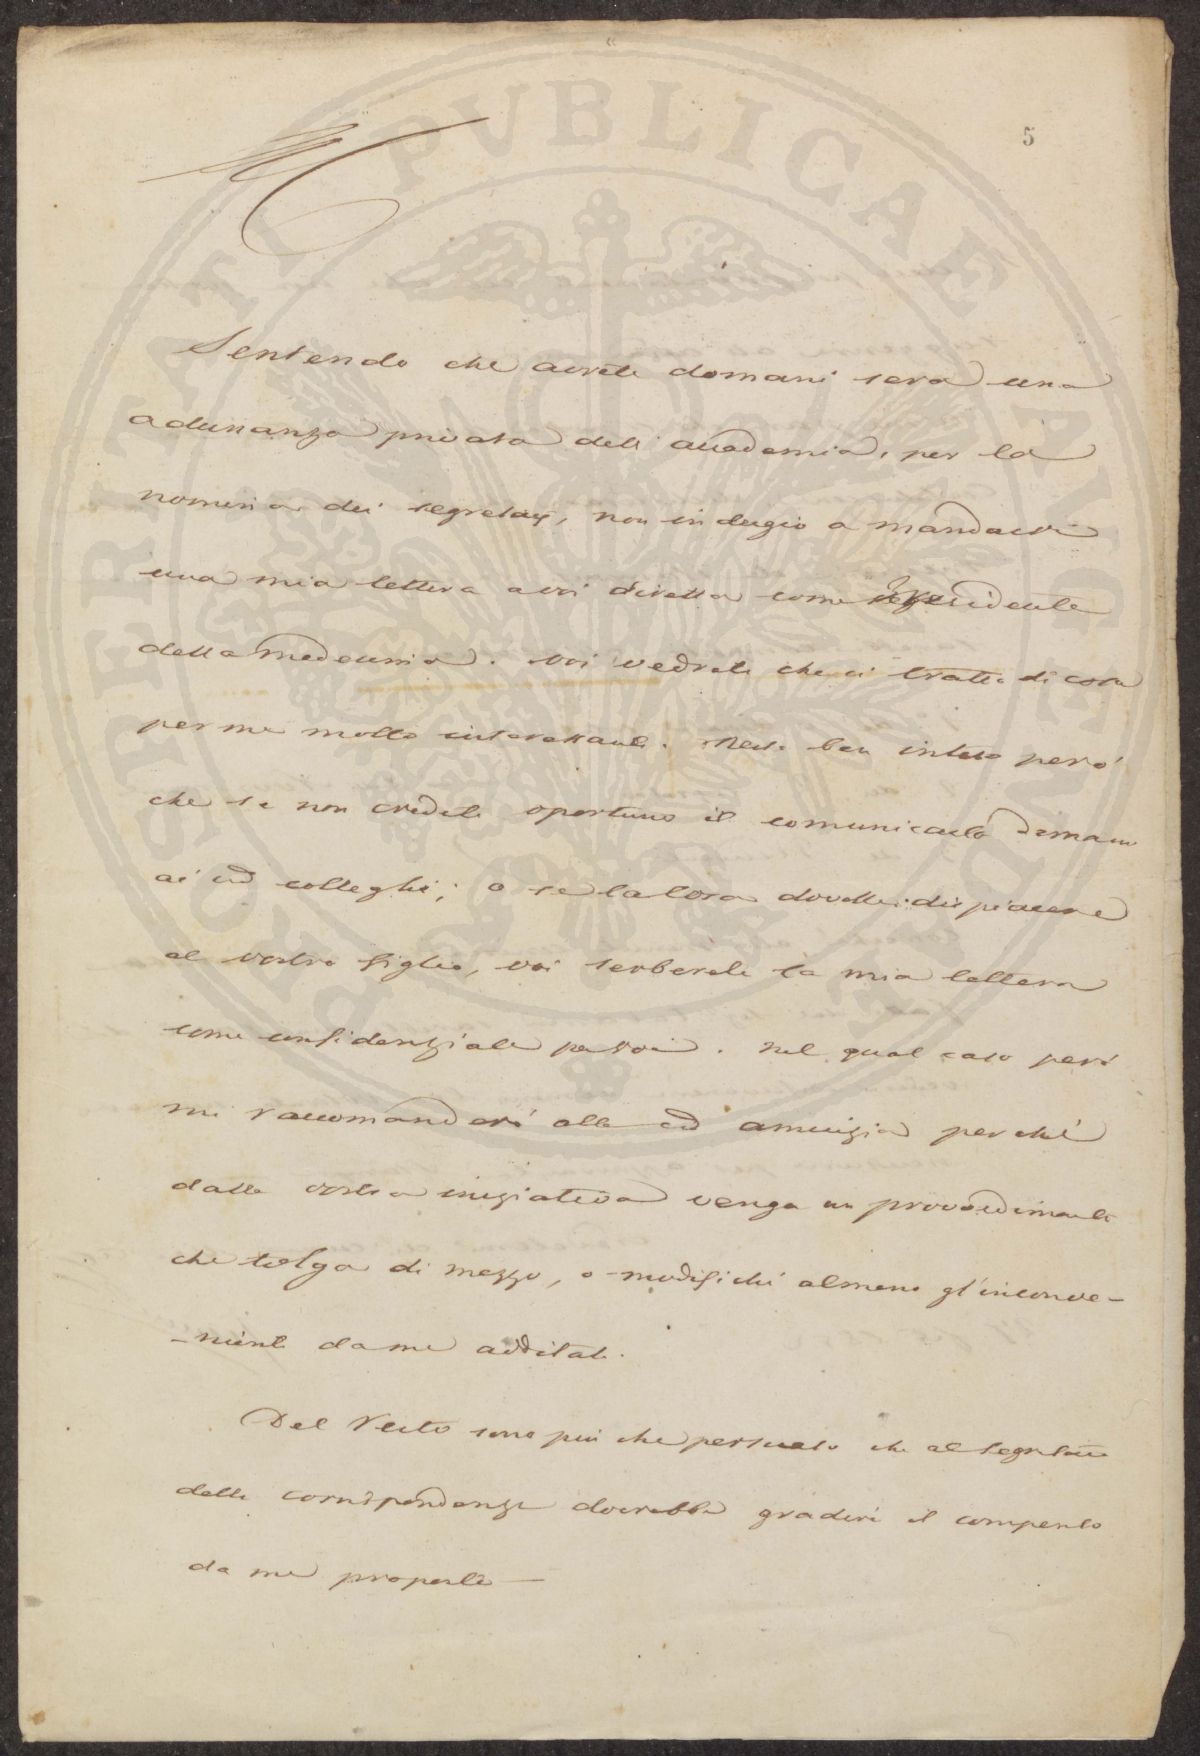 5
Sentendo che avrete domani sera una
adunanza privata dell'accademia, per la
nomina dei segretarj, non indugio a mandarvi
una mia lettera a voi diretta come presidente
della medesima. Voi vedrete che ci tratta di cosa
per me molto interessante. Resta ben inteso però
che se non credete oportuno il comunicarla domani
ai colleghi; o se la cosa dovesse dispiacere
al vostro figlio, voi serberete la mia lettera
come confidenziale per voi. Nel qual caso però
mi raccomanderò alla amicizia perchè
dalla vostra iniziativa venga un provvedimento
che tolga di mezzo, o modifichi almeno gl'inconve-
-nienti da me additati.
Del resto sono più che persuaso che al segretario
delle corrispondenze dovrebbe gradire il compenso
da me proposto —
PROSPERITATI PVBLICAE AVGENDAE